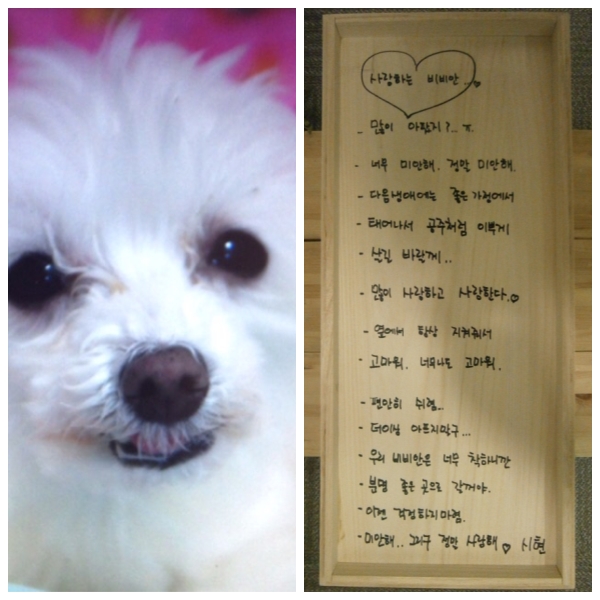 사랑하는 비비안...
- 많이 아팠지?.. ㅠ.
- 너무 미안해. 정말 미안해.
- 다음생애에는 좋은 가정에서
- 태어나서 공주처럼 이쁘게
- 살길 바랄께..
- 많이 사랑하고 사랑한다.♡
- 옆에서 항상 지켜줘서
- 고마워. 너무나도 고마워.
- 편안히 쉬렴..
- 더이상 아프지말구...
- 우리 비비안은 너무 착하니깐
- 분명 좋은 곳으로 갈꺼야.
- 이젠 걱정하지마렴.
- 미안해.. 그리구 정말 사랑해 ♡ 시현